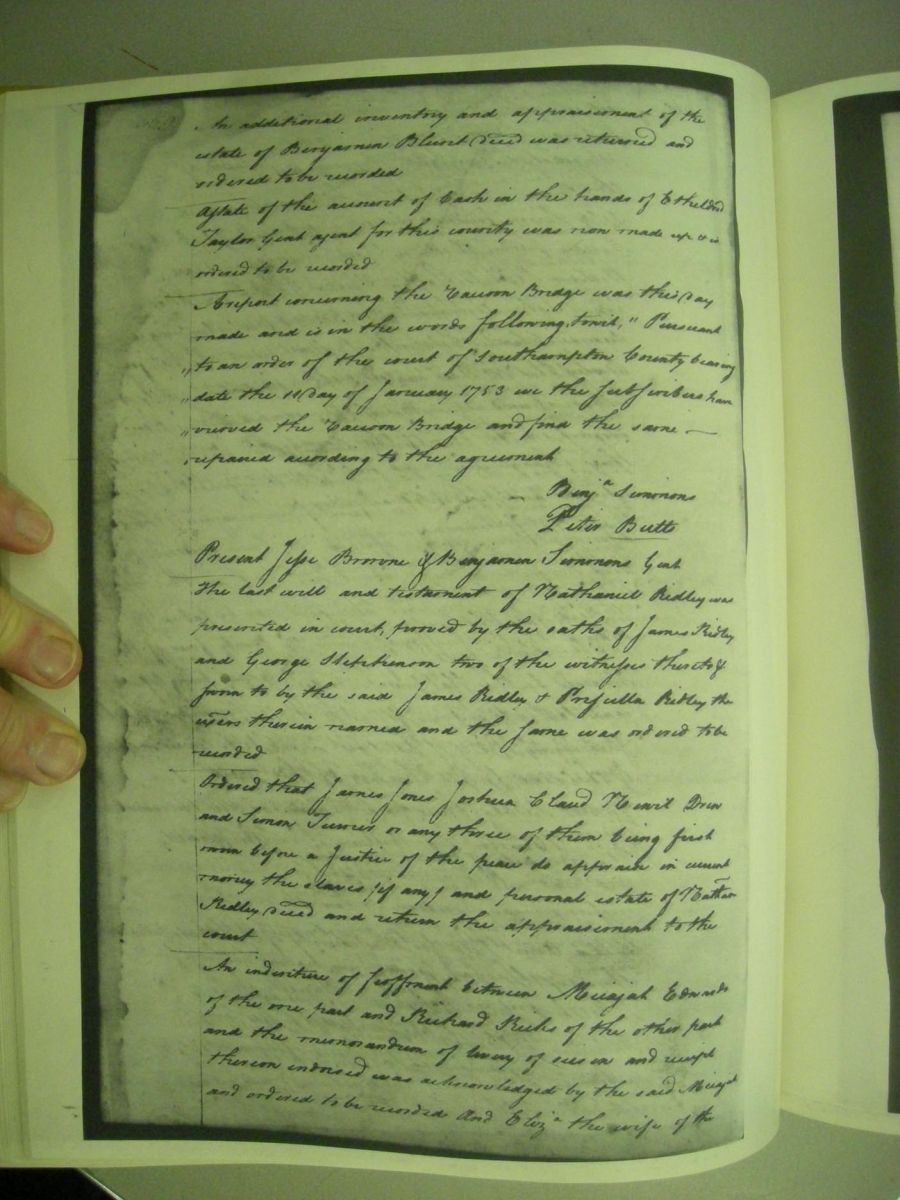 An additional inventory and appraisement of the
estate of Benjamin Blunt dec̃ed was returned and
ordered to be recorded
A state of the account of Cash in the hands of Etheldred
Taylor Gent agent for this county was now made up & is
ordered to be recorded
A report concerning the Bridge was this day
made and is in the words following, towit, " Pursuant
" to an order of the court of Southampton County bearing
" date the 11 Day of January 1753 we the subscribers have
" viewed the Bridge and find the same —
repaired according to the agreement
Benjᵃ Simmons
Peter Butts
Present Jesse Browne & Benjamin Simmons Gent
The last will and testament of Nathaniel Ridley was
presented in court, proved by the oaths of James Ridley
and George Stephenson two of the witnesses thereto &
sworn to by the said James Ridley & Priscilla Ridley the
therein named and the same was ordered to be
recorded
Ordered that James Jones Joshua Claud Newit Drew
and Simon Turner or any three of them being first
sworn before a Justice of the peace do appraise in current
money the slaves (if any) and personal estate of Nathan
Ridley dec̃ed and return the appraisement to the
court
An indenture of feoffment between Micajah Edwards
of the one part and Richard Ricks of the other part
and the memorandum of livery of seisin and receipt
thereon indorsed was acknowledged by the said Micajah
and ordered to be recorded And Elizᵃ the wife of the